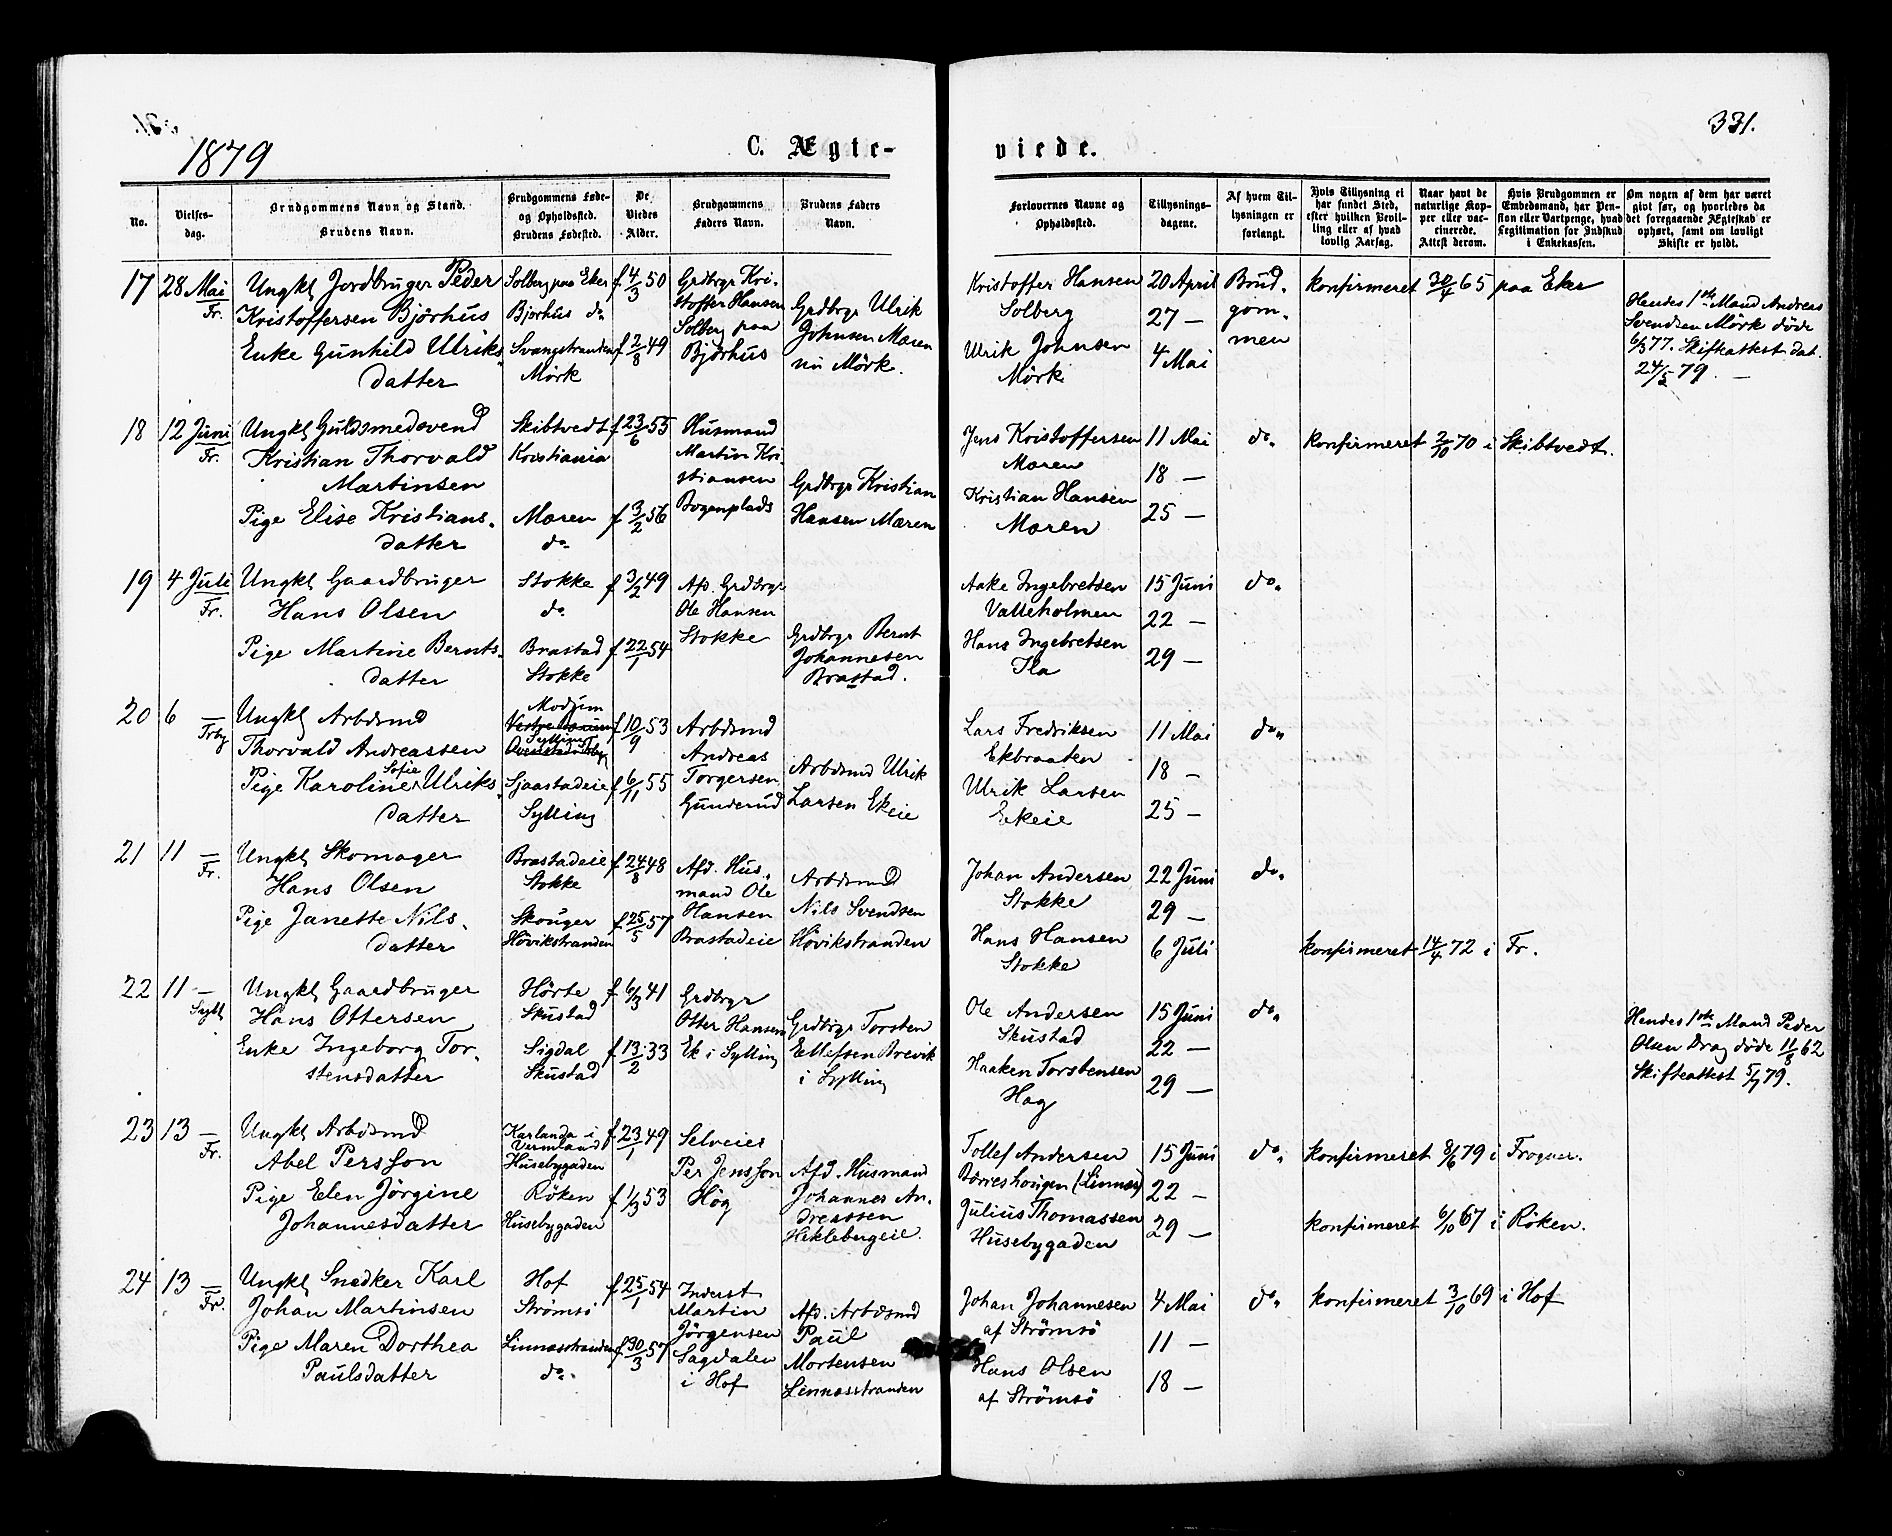 1879
C. Ægte-
viede.
331.
No.
Vielses-
dag.
Brudgommens Navn og Stand.
Brudens Navn.
Brudgommens Føde-
og Opholdssted.
Brudens Fødested.
De
Viedes
Alder.
Brudgommens
Faders Navn.
Brudens Faders
Navn.
Forlovernes Navne og
Opholdssted.
Tillysnings-
dagene.
Af hvem Til-
lysningen er
forlangt.
Hvis Tillysning ei
har fundet Sted,
efter hvilken Bevil-
ling eller af hvad
lovlig Aarsag.
Naar havt de
naturlige Kop-
per eller vac-
cinerede.
Attest derom.
Hvis Brudgommen er
Embedsmand, har Pen-
sion eller Vartpenge, hvad
Legitimation for Indskud
i Enkekassen.
Om nogen af dem har været
gift før, og hvorledes da
det foregaaende Ægteskab er
ophørt, samt om lovligt
Skifte er holdt.
17
28 Mai
Fr.
Ungkl Jordbruger Peder
Kristoffersen Bjørhus
Enke Gunhild Ulriks-
datter
Solberg paa Eker
Bjørhus do
Svangstranden
Mørk
f 4/3 50
f 2/8 49
Grdbrgr Kri-
stoffer Hansen
Solberg paa
Bjørhus
Grdbrgr Ulrik
Johnsen Mæren
nu Mørk.
Kristoffer Hansen
Solberg
Ulrik Johnsen
Mørk
20 April
27 —
4 Mai
Brud-
gom-
men
konfirmeret 30/4 65 paa Eker
Hendes 1ste Mand Andreas
Svendsen Mörk döde
6/3 77. Skifteattest dat.
24/5 79. —
18
12 Juni
Fr.
Ungkl Guldsmedsvend
Kristian Thorvald
Martinsen
Pige Elise Kristians-
datter
Skibtvedt
Kristiania
Mæren
do
f 23/6 55
f 3/2 56
Husmand
Martin Kri-
stiansen
Bogenplads
Grdbrgr Kristian
Hansen Mæren
Jens Kristoffersen
Mæren
Kristian Hansen
Mæren
11 Mai
18 —
25 —
do
konfirmeret 2/10 70 i Skibtvedt.
19
4 Juli
Fr.
Ungkl Gaardbruger
Hans Olsen
Pige Martine Bernts-
datter
Stokke
do
Brastad
Stokke
f 3/2 49
f 22/1 54
Afd. Grdbrgr
Ole Hansen
Stokke
Grdbrgr Bernt
Johannesen
Brastad.
Aake Ingebretsen
Valleholmen
Hans Ingebretsen
Ila
15 Juni
22 —
29 —
do
20
6 —
Frby
Ungkl Arbdsmd
Thorvald Andreassen
Pige Karoline Sofie Ulriks-
datter
Modum
Sylling
Sjaastadeie
Sylling
f 10/9 53
f 6/11 55
Arbdsmd
Andreas
Torgersen
Gunderud
Arbdsmd Ulrik
Larsen Ekeie
Lars Fredriksen
Ekbraaten
Ulrik Larsen
Ekeie
11 Mai
18 —
25 —
do
21
11 —
Fr.
Ungkl Skomager
Hans Olsen
Pige Janette Nils-
datter
Brastadeie
Stokke
Skouger
Hövikstranden
f 24/8 48
f 25/5 57
Afd. Hus-
mand Ole
Hansen
Brastadeie
Arbdsmd
Nils Svendsen
Hövikstranden
Johan Andersen
Stokke
Hans Hansen
Stokke
22 Juni
29 —
6 Juli
do
konfirmeret 14/4 72 i Fr.
22
11 —
Syll
Ungkl Gaardbruger
Hans Ottersen
Enke Ingeborg Tor-
stensdatter
Hörte
Skustad
Sigdal
Skustad
f 6/3 41
f 13/2 33
Grdbrgr
Otter Hansen
Ek i Sylling
Grdbrgr Torsten
Ellefsen Brevik
i Sylling
Ole Andersen
Skustad
Haaken Torstensen
Hag
15 Juni
22 —
29 —
do
Hendes 1ste Mand Peder
Olsen Drag døde 11/8 62
Skifteattest 5/7 79.
23
13 —
Fr.
Ungkl Arbdsmd
Abel Persson
Pige Elen Jörgine
Johannesdatter
Karlanda i
Vermland
Husebygaden
Röken
Husebygaden
f 23/1 49
f 1/3 53
Selveier
Per Jensson
Hög
Afd. Husmand
Johannes An-
dreassen
Heklebergeie.
Tollef Andersen
(Linnes)
Julius Thomassen
Husebygaden
15 Juni
22 —
29 —
do
konfirmeret 8/6 79 i Frogner.
konfirmeret 6/10 67 i Röken.
24
13 —
Fr.
Ungkl Snedker Karl
Johan Martinsen
Pige Maren Dorthea
Paulsdatter
Hof
Strömsö
Linnesstranden
do
f 25/1 54
f 30/3 57
Inderst
Martin
Jörgensen
Sagdalen
i Hof
Afd. Arbdsmd
Paul
Mortensen
Linnesstranden
Johan Johannesen
af Strömsö
Hans Olsen
af Strömsö
4 Mai
11 —
18 —
do
konfirmeret 3/10 69 i Hof